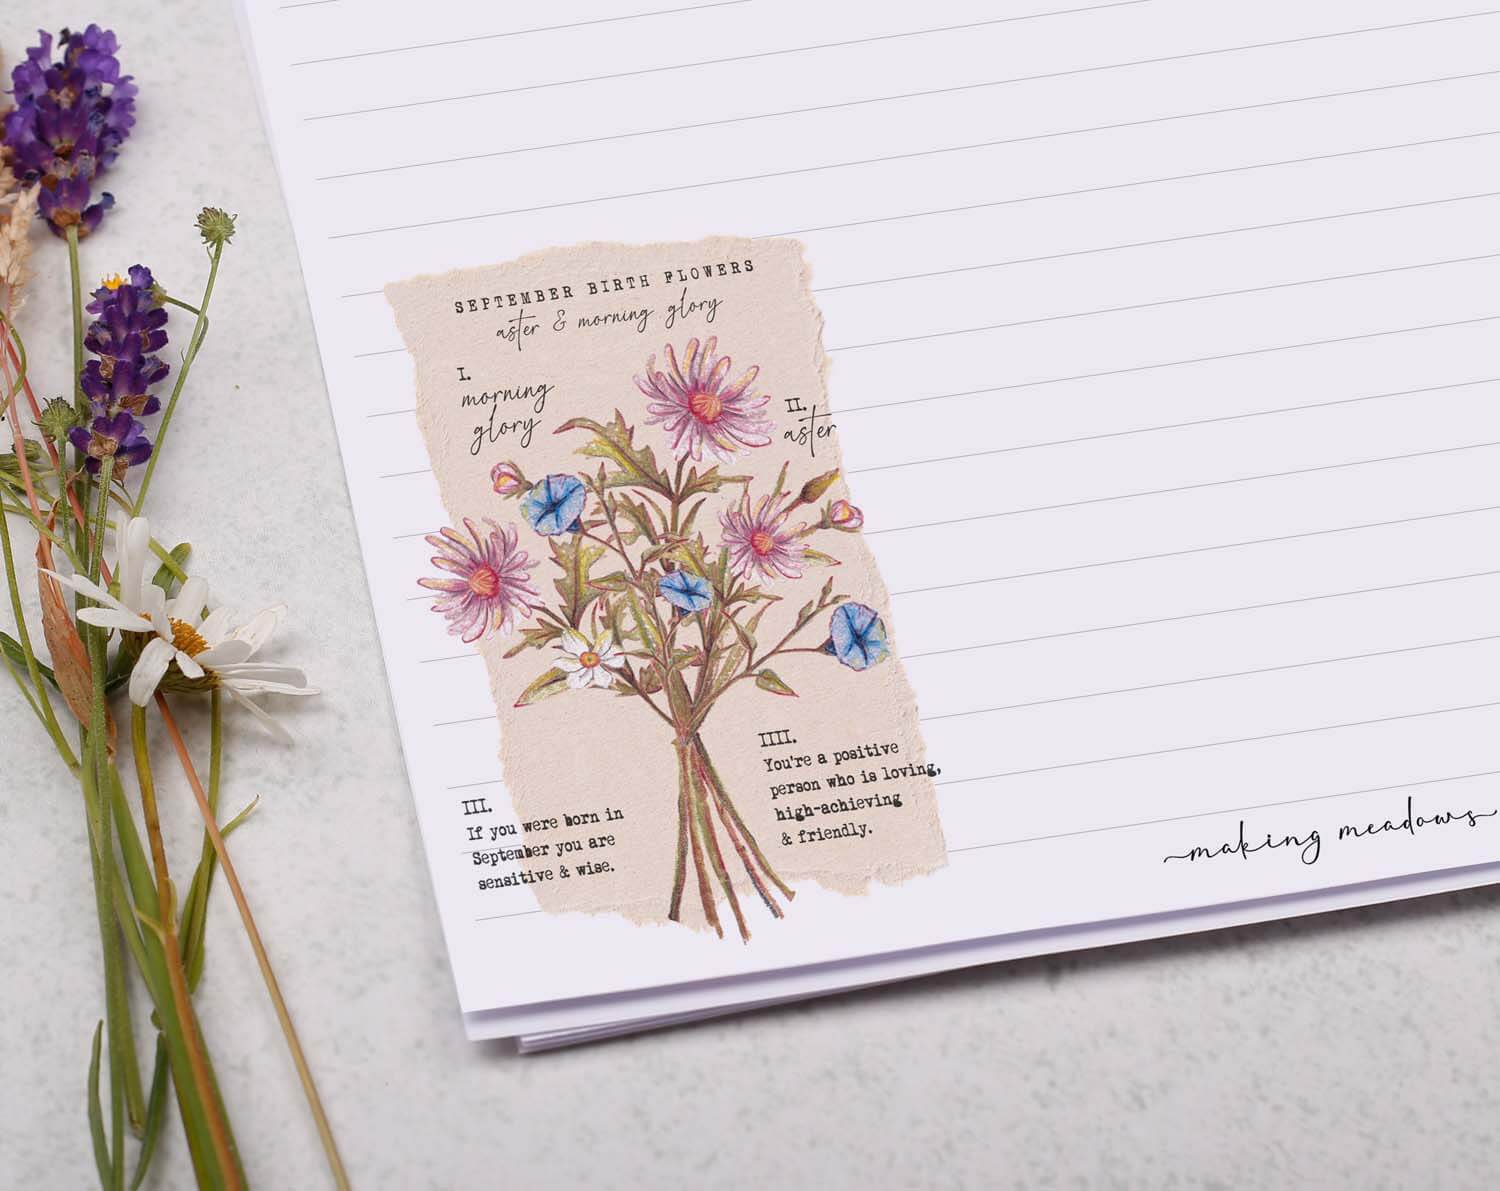 SEPTEMBER BIRTH FLOWERS
aster & morning glory
I.
morning
glory
II.
aster
III.
If you were born in
September you are
sensitive & wise.
IIII.
You're a positive
person who is loving,
high-achieving
& friendly.
making meadows